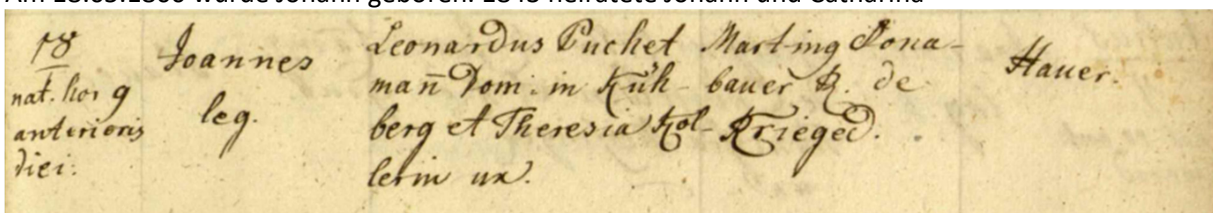 Am 18.05.1800 wurde Johann geboren. 1848 heiratete Johann und Catharina
18
nat. hor 9
anterioris
diei.
Joannes
leg.
Leonardus Puchet
mañ Dom. in Küh-
berg et Theresia Kol-
lerin ux.
Marting Dona-
bauer R. de
Krieged.
Hauer.